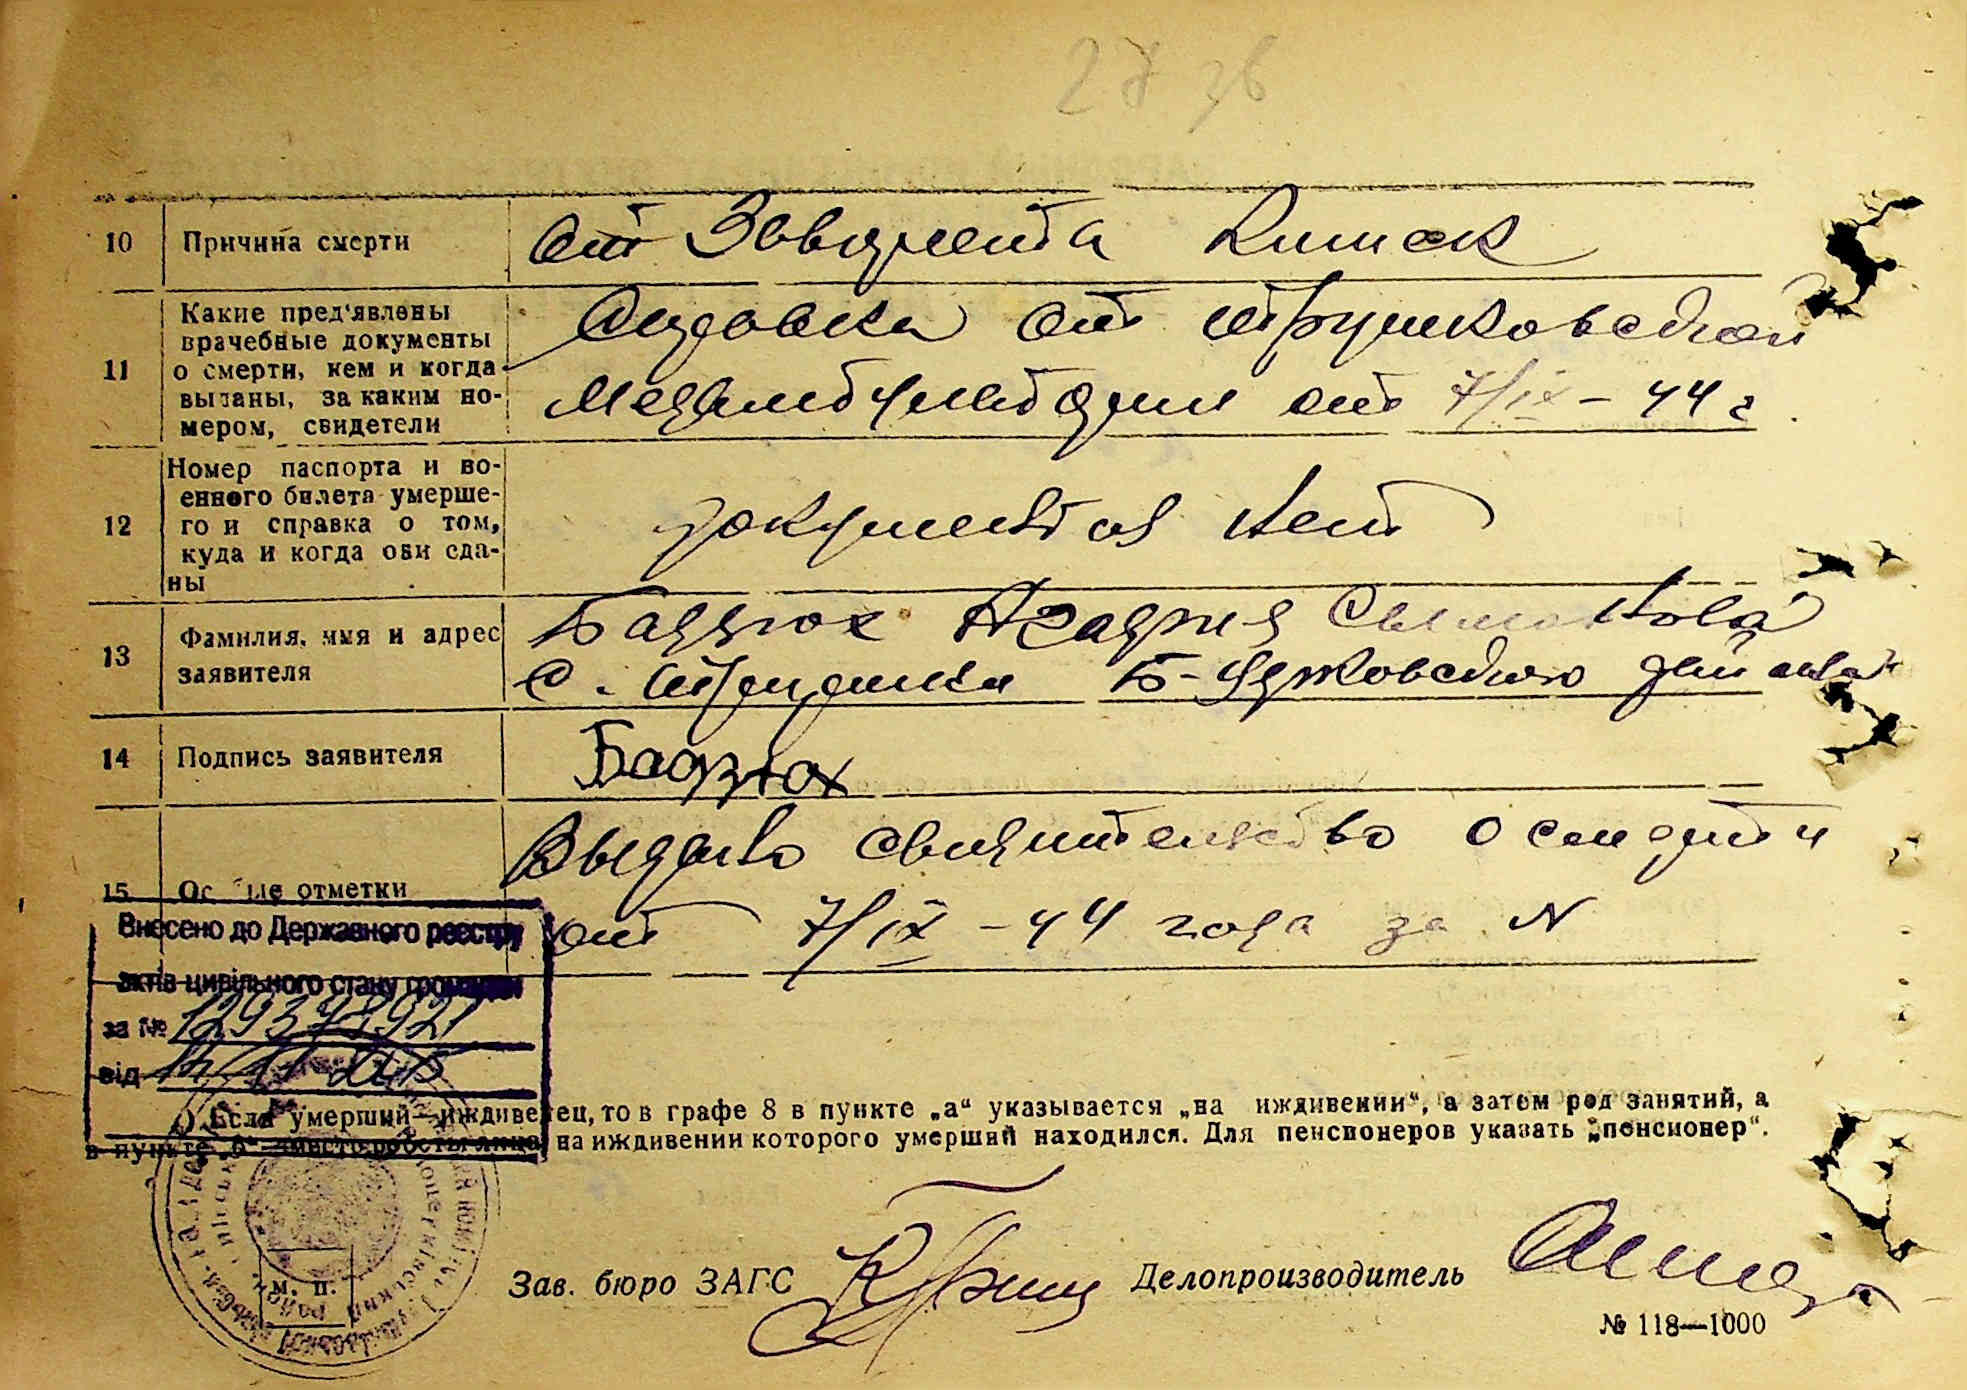 27 36
10 Причина смерти от Заворота Кишок
11 Какие пред'явлены врачебные документы о смерти, кем и когда выданы, за каким номером, свидетели
Справка от
Медамбулатории от 7/IX – 44 г.
12 Номер паспорта и военного билета умершего и справка о том, куда и когда они сданы
документов нет
13 Фамилия, имя и адрес заявителя
Бадзюх
с. Б-Церковского района
14 Подпись заявителя Бадзюх
15 Особые отметки
Выдано свидительство о смерти
от 7/IX – 44 года за N
Внесено до Державного реєстру
актів цивільного стану громадян
за №
від
Если умерший иждивенец, то в графе 8 в пункте „а“ указывается „на иждивении“, а затем род занятий, а
в пункте „б“ вместо работы лица, на иждивении которого умерший находился. Для пенсионеров указать „пенсионер“.
М. П.
Зав. бюро ЗАГС Делопроизводитель
№ 118—1000